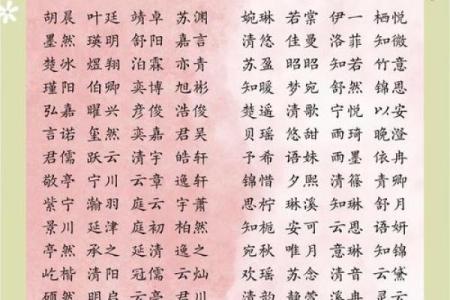 胡晨 叶廷 靖卓 苏渊 婉琳 若棠 伊一 栖悦
墨然 瑛明 舒阳 嘉言 清悠 佳曼 洛菲 知微
楚冰 煜翔 泊霖 亦青 苏盈 昭昭 知若 竹意
瑾阳 伯卿 奕博 旭彬 知暖 梦宛 舒然 锦思
弘嘉 曜兴 彦俊 浩俊 楚遥 清歌 宁悦 以安
言诺 玺然 奕嘉 君昊 贝瑶 悠甜 雨琦 晚澄
君儒 跃云 清宇 皓轩 予希 语姝 雨墨 依冉
敬亭 宁川 云章 逸轩 锦惜 夕熙 清篠 青卿
紫宁 瀚羽 庭宇 宇萧 思柠 琳溪 知舒 舒月
景川 延津 庭初 柏然 知栀 安可 云思 语妍
亭然 承之 延清 逸之 宛秋 唯月 意琳 知锦
屹楷 清阳 冠儒 云灿 欢瑶 苏念 清音 云黛